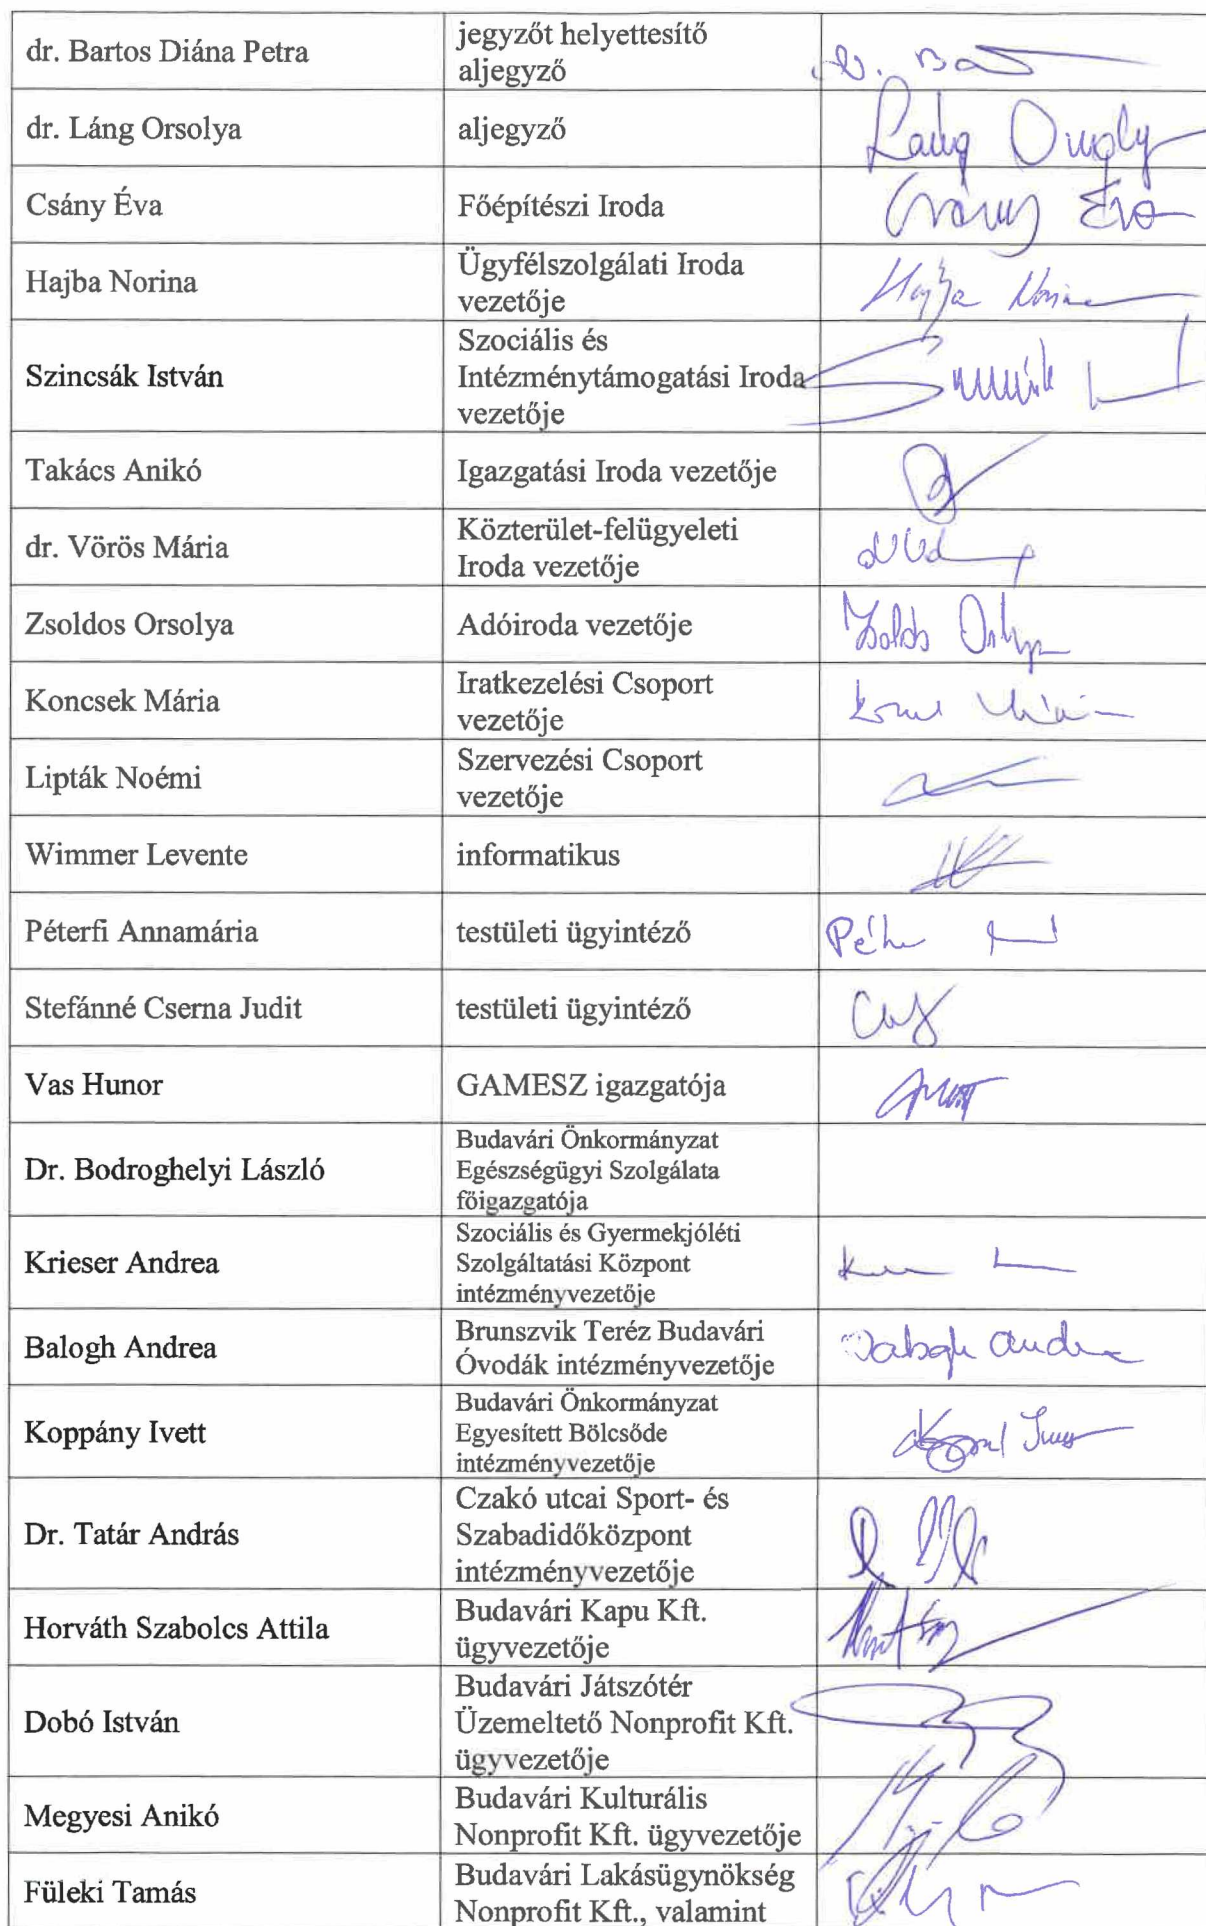 dr. Bartos Diána Petra
jegyzőt helyettesítő
aljegyző
dr. Láng Orsolya
aljegyző
Csány Éva
Főépítészi Iroda
Hajba Norina
Ügyfélszolgálati Iroda
vezetője
Hajba Norina
Szincsák István
Szociális és
Intézménytámogatási Iroda
vezetője
Takács Anikó
Igazgatási Iroda vezetője
dr. Vörös Mária
Közterület-felügyeleti
Iroda vezetője
Zsoldos Orsolya
Adóiroda vezetője
Koncsek Mária
Iratkezelési Csoport
vezetője
Lipták Noémi
Szervezési Csoport
vezetője
Wimmer Levente
informatikus
Péterfi Annamária
testületi ügyintéző
Stefánné Cserna Judit
testületi ügyintéző
Vas Hunor
GAMESZ igazgatója
Dr. Bodroghelyi László
Budavári Önkormányzat
Egészségügyi Szolgálata
főigazgatója
Krieser Andrea
Szociális és Gyermekjóléti
Szolgáltatási Központ
intézményvezetője
Balogh Andrea
Brunszvik Teréz Budavári
Óvodák intézményvezetője
Balogh Andrea
Koppány Ivett
Budavári Önkormányzat
Egyesített Bölcsőde
intézményvezetője
Dr. Tatár András
Czakó utcai Sport- és
Szabadidőközpont
intézményvezetője
Horváth Szabolcs Attila
Budavári Kapu Kft.
ügyvezetője
Dobó István
Budavári Játszótér
Üzemeltető Nonprofit Kft.
ügyvezetője
Megyesi Anikó
Budavári Kulturális
Nonprofit Kft. ügyvezetője
Füleki Tamás
Budavári Lakásügynökség
Nonprofit Kft., valamint